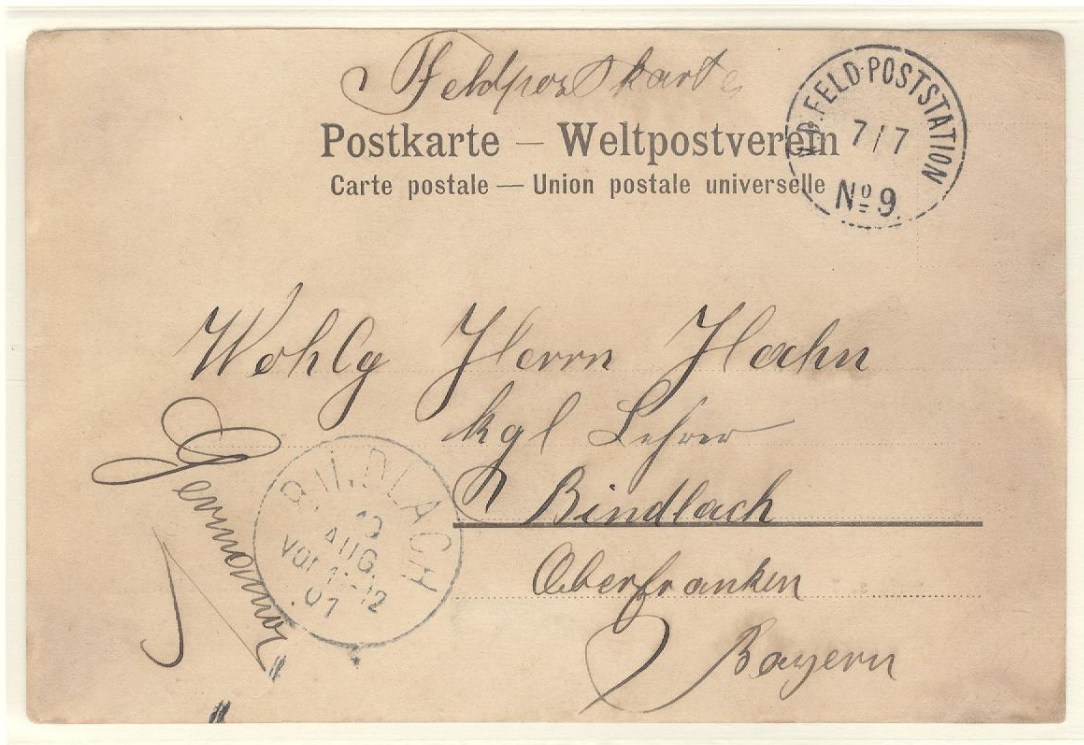 Feldpostkarte
Postkarte – Weltpostverein
Carte postale — Union postale universelle
K.D. FELD-POSTSTATION
7/7
No 9.
Wohlg Herrn Hahn
kgl Lehrer
Bindlach
Oberfranken
Bayern
BINDLACH
AUG.
VOR 11-12
07